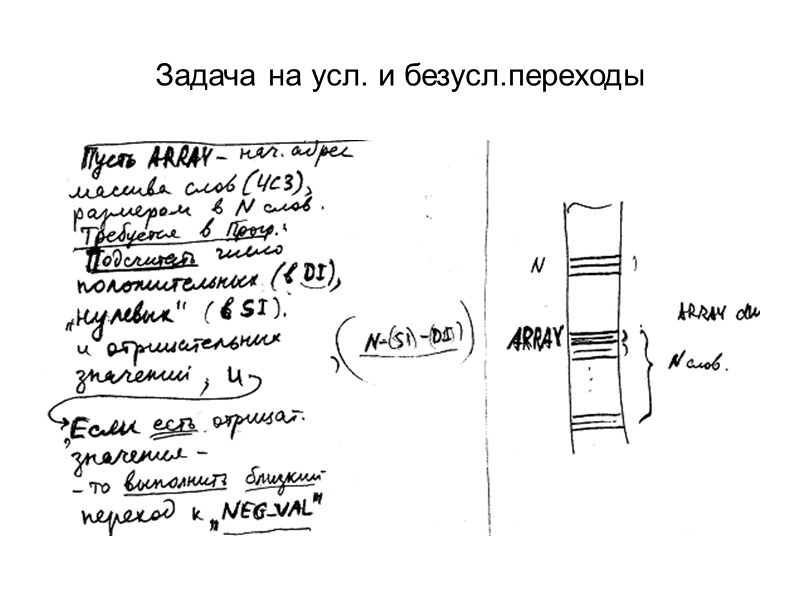 Задача на усл. и безусл.переходы
Пусть ARRAY – нач. адрес
массива слов (ЧСЗ),
размером в N слов.
Требуется в Прогр.:
Подсчитать число
положительных (в DI),
„нулевых" (в SI).
и отрицательных
значений, и
(N-(SI)-(DI))
„Если есть отрицат.
значения –
- то выполнить близкий
переход к „NEG_VAL"
N
ARRAY
ARRAY
N слов.